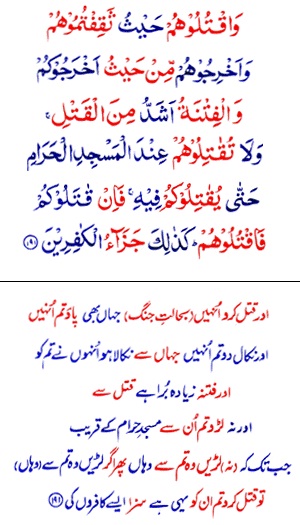 وَاقْتُلُوْهُمْ حَيْثُ ثَقِفْتُمُوْهُمْ
وَاَخْرِجُوْهُمْ مِّنْ حَيْثُ اَخْرَجُوْكُمْ
وَالْفِتْنَةُ اَشَدُّ مِنَ الْقَتْلِ ۚ
وَلَا تُقٰتِلُوْهُمْ عِنْدَ الْمَسْجِدِ الْحَرَامِ
حَتّٰى يُقٰتِلُوْكُمْ فِيْهِ ۚ فَاِنْ قٰتَلُوْكُمْ
فَاقْتُلُوْهُمْ ؕ كَذٰلِكَ جَزَآءُ الْكٰفِرِيْنَ ﴿۱۹۱﴾
اور قتل کرو اُنہیں (بحالتِ جنگ) جہاں بھی پاؤ تم اُنہیں
اور نکال دو تم اُنہیں جہاں سے نکالا ہو اُنہوں نے تم کو
اور فتنہ زیادہ بُرا ہے قتل سے
اور نہ لڑو تم اُن سے مسجدِ حرام کے قریب
جب تک کہ (نہ) لڑیں وہ تم سے وہاں پھر اگر لڑیں وہ تم سے (وہاں)
تو قتل کرو تم ان کو یہی ہے سزا ایسے کافروں کی ﴿۱۹۱﴾